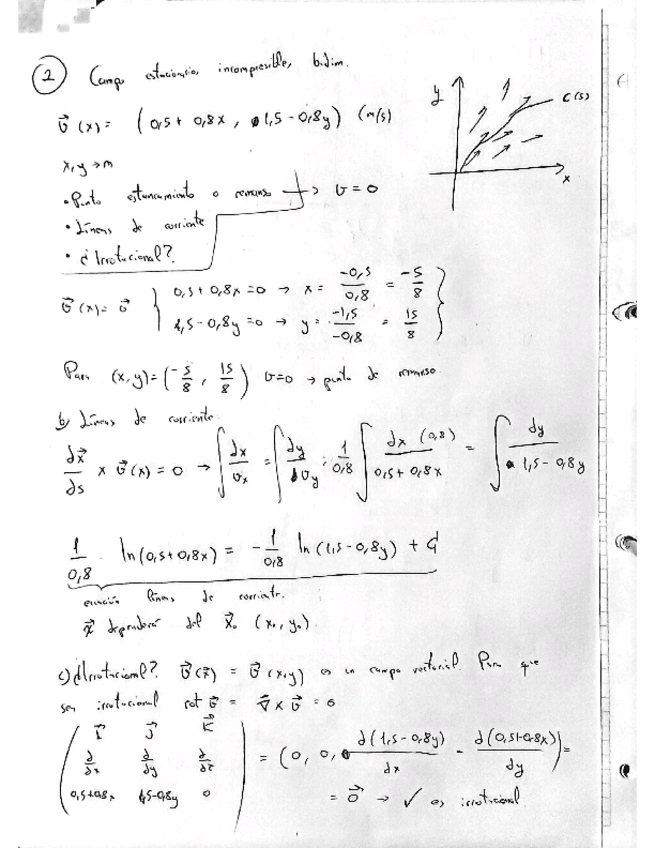 2 Campo estacionario, incompresible, bidim.
y
C(s)
x
v⃗(x) = (0,5 + 0,8x, 1,5 - 0,8y) (m/s)
x, y → m
• Punto estancamiento o remanso → v = 0
• Líneas de corriente
• ¿Irrotacional?
v⃗(x) = 0⃗ { 0,5 + 0,8x = 0 → x = -0,5/0,8 = -5/8
1,5 - 0,8y = 0 → y = -1,5/-0,8 = 15/8 }
Para (x,y) = (-5/8, 15/8) v=0 → punto de remanso
b) Líneas de corriente
dx⃗/ds × v⃗(x) = 0 → ∫ dx/vx = ∫ dy/vy ; 1/0,8 ∫ dx (0,8)/(0,5 + 0,8x) = ∫ dy/(1,5 - 0,8y)
1/0,8 · ln(0,5 + 0,8x) = -1/0,8 ln(1,5 - 0,8y) + C
ecuación líneas de corriente.
dependerá del x⃗₀ (x₀, y₀)
c) ¿Irrotacional? v⃗(x⃗) = v⃗(x,y) es un campo vectorial. Para que
sea irrotacional rot v⃗ = ∇⃗ × v⃗ = 0
( i⃗ j⃗ k⃗
∂/∂x ∂/∂y ∂/∂z
0,5+0,8x 1,5-0,8y 0 ) = (0, 0, ∂(1,5-0,8y)/∂x - ∂(0,5+0,8x)/∂y) =
= 0⃗ → ✓ es irrotacional